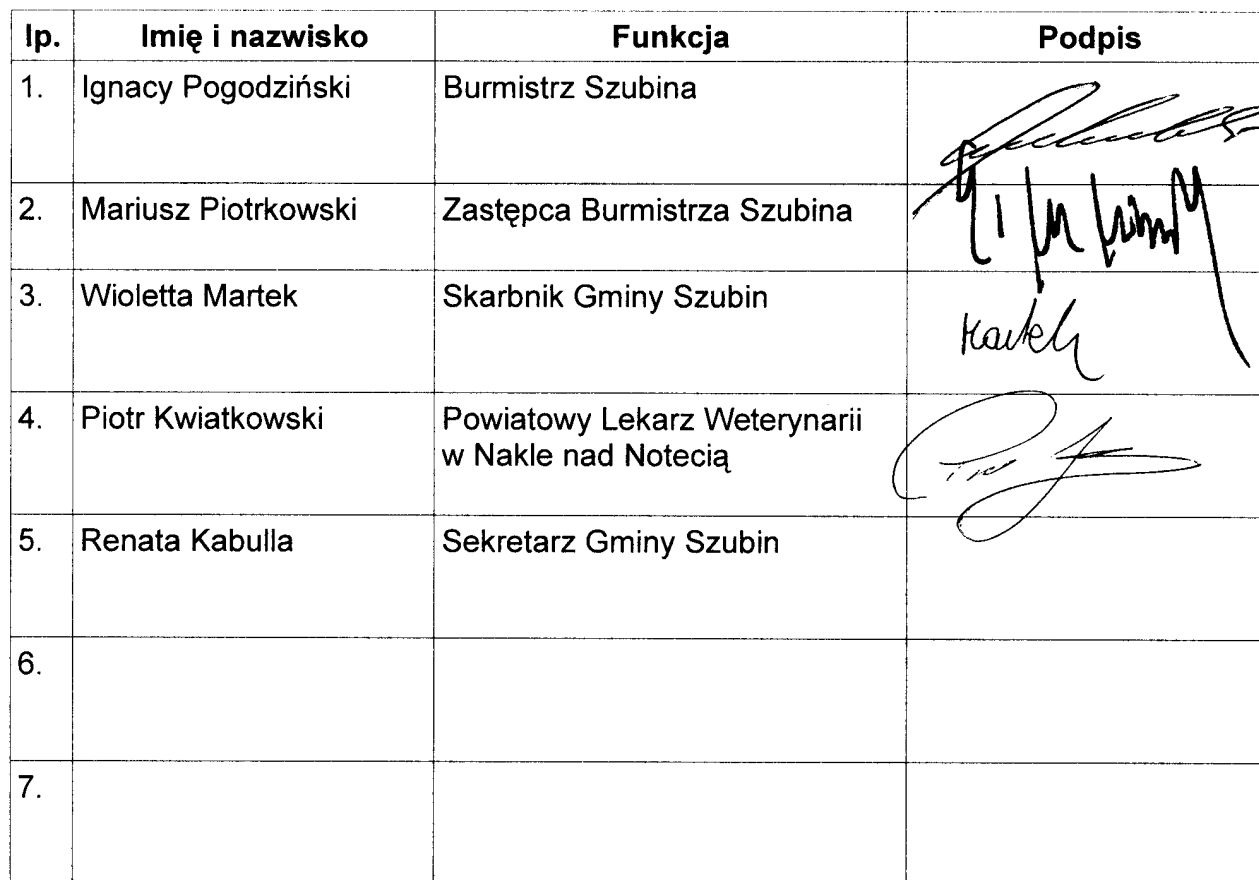 lp. Imię i nazwisko Funkcja Podpis
1. Ignacy Pogodziński Burmistrz Szubina
2. Mariusz Piotrkowski Zastępca Burmistrza Szubina
3. Wioletta Martek Skarbnik Gminy Szubin
4. Piotr Kwiatkowski Powiatowy Lekarz Weterynarii
w Nakle nad Notecią
5. Renata Kabulla Sekretarz Gminy Szubin
6.
7.